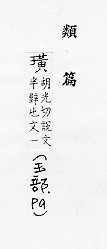 類篇
璜胡光切說文
半璧也文一
(玉部.
P9)